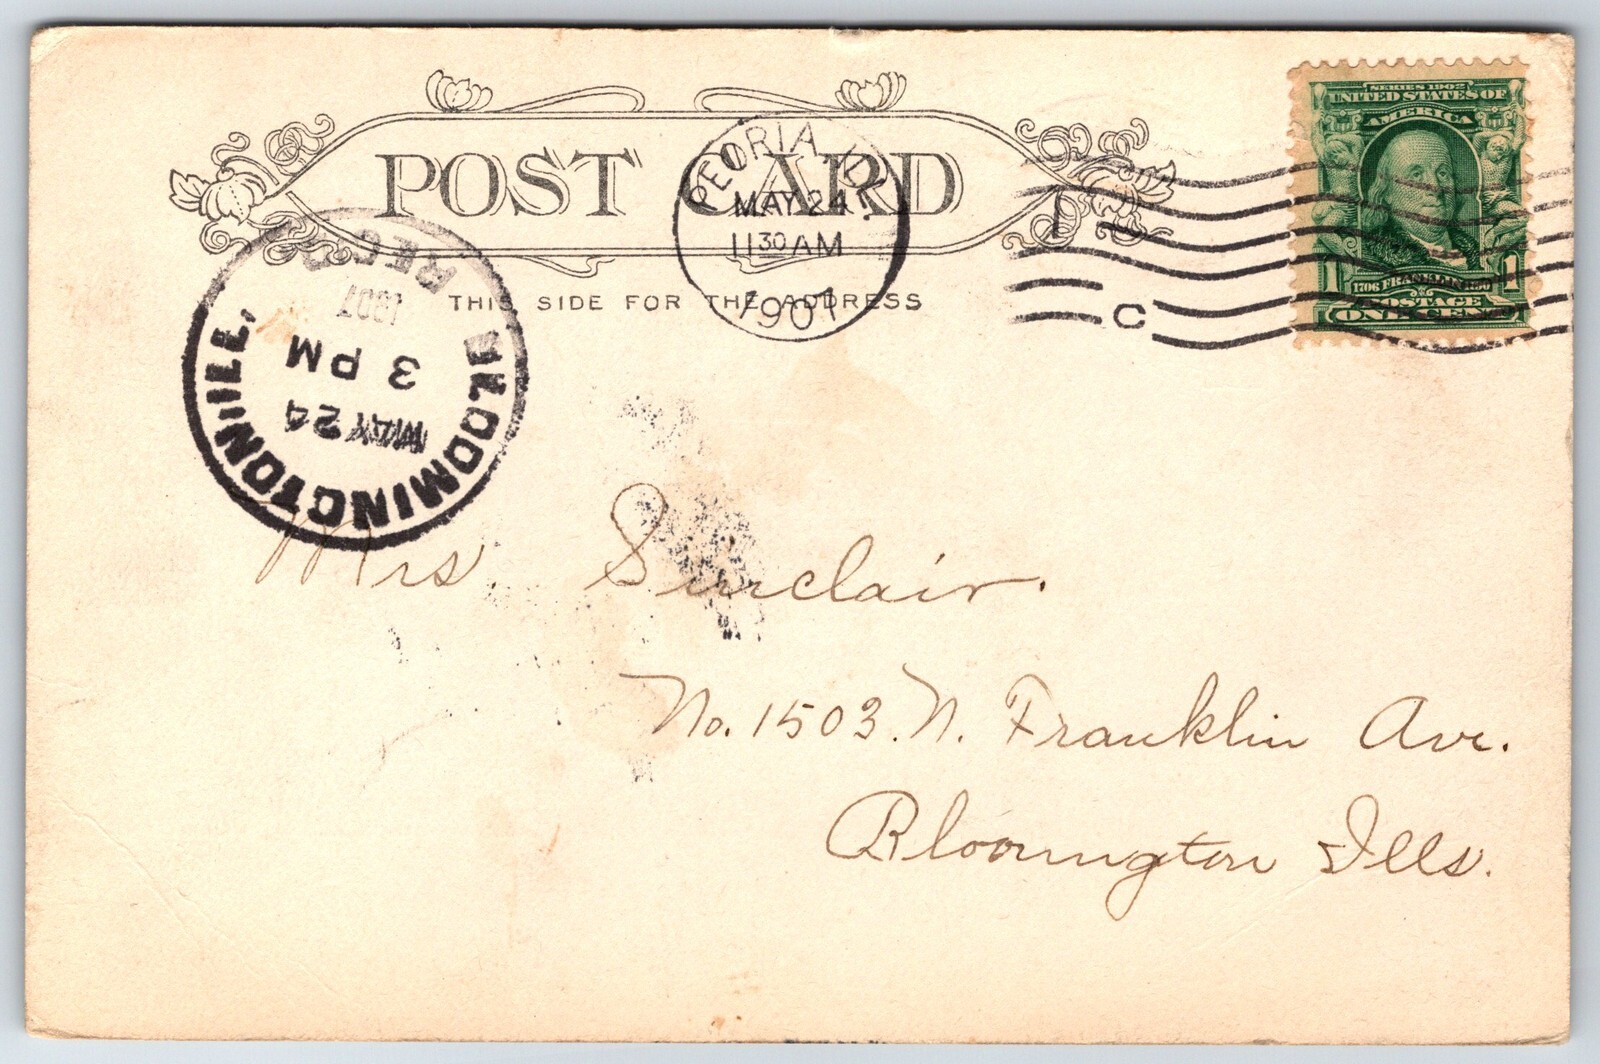 POST CARD
THIS SIDE FOR THE ADDRESS
PEORIA, ILL.
MAY 24
11 30 AM
1907
C
SERIES 1902
UNITED STATES OF
AMERICA
1 1
1706 FRANKLIN 1790
POSTAGE
ONE CENT
BLOOMINGTON, ILL.
MAY 24
3 PM
1907
REC'D
Mrs. Sinclair.
No. 1503. N. Franklin Ave.
Bloomington Ills.